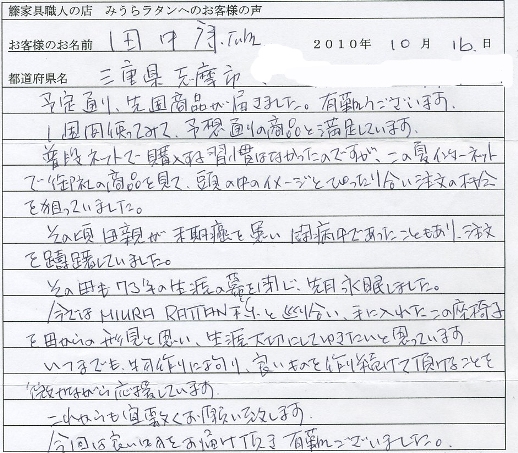 籐家具職人の店 みうらラタンへのお客様の声
お客様のお名前 田中 2010年 10月 16日
都道府県名 三重県志摩市
予定通り、先週商品が届きました。有難うございます。
1週間使ってみて、予想通りの商品と満足しています。
普段ネットで購入する習慣はなかったのですが、この夏インターネット
で御社の商品を見て、頭の中のイメージとぴったり合い注文の機会
を狙っていました。
その頃母親が末期癌を患い闘病中であったこともあり、注文
を躊躇していました。
その母も73年の生涯の幕を閉じ、先月永眠しました。
今ではMIURA RATTAN様と巡り合い、手に入れたこの座椅子
を母からの形見と思い、生涯大切にしてゆきたいと思っています。
いつまでも、物作りに拘り、良いものを作り続けて頂けることを
微力ながら応援しています。
これからも宜敷くお願い致します。
今回は良い品をお届け頂き有難うございました。